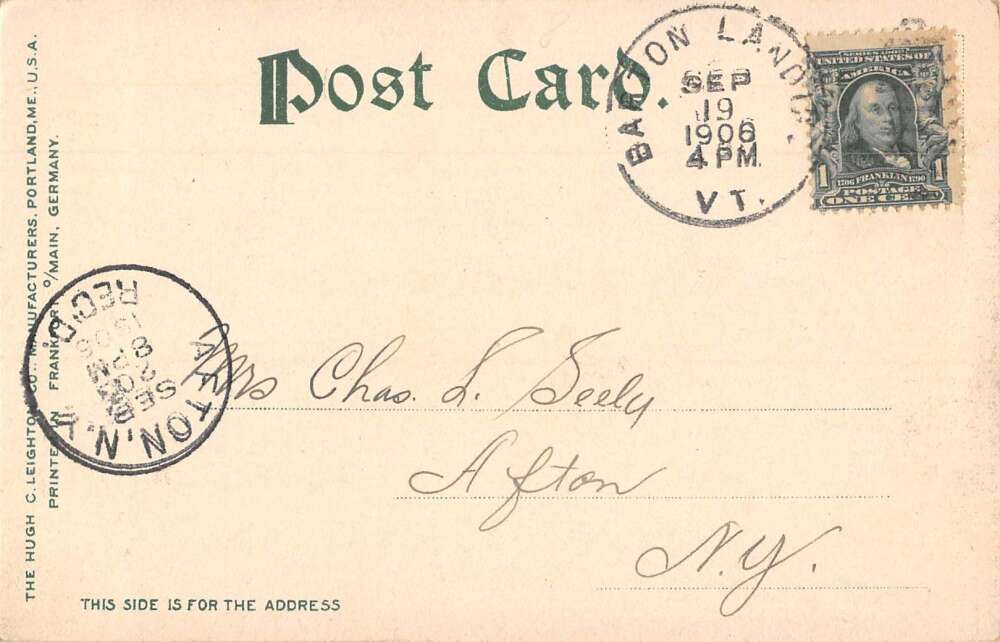 Post Card.
BARTON LANDG.
SEP
19
1906
4 PM
VT.
SERIES 1902
UNITED STATES OF
AMERICA
1706 FRANKLIN 1790
1 1
POSTAGE
ONE CENT
THE HUGH C. LEIGHTON CO., MANUFACTURERS, PORTLAND, ME., U.S.A.
PRINTED IN FRANKFORT O/MAIN, GERMANY.
AFTON, N.Y.
SEP
20
8 PM
1906
REC'D.
Mrs Chas. L. Seely
Afton
N.Y.
THIS SIDE IS FOR THE ADDRESS